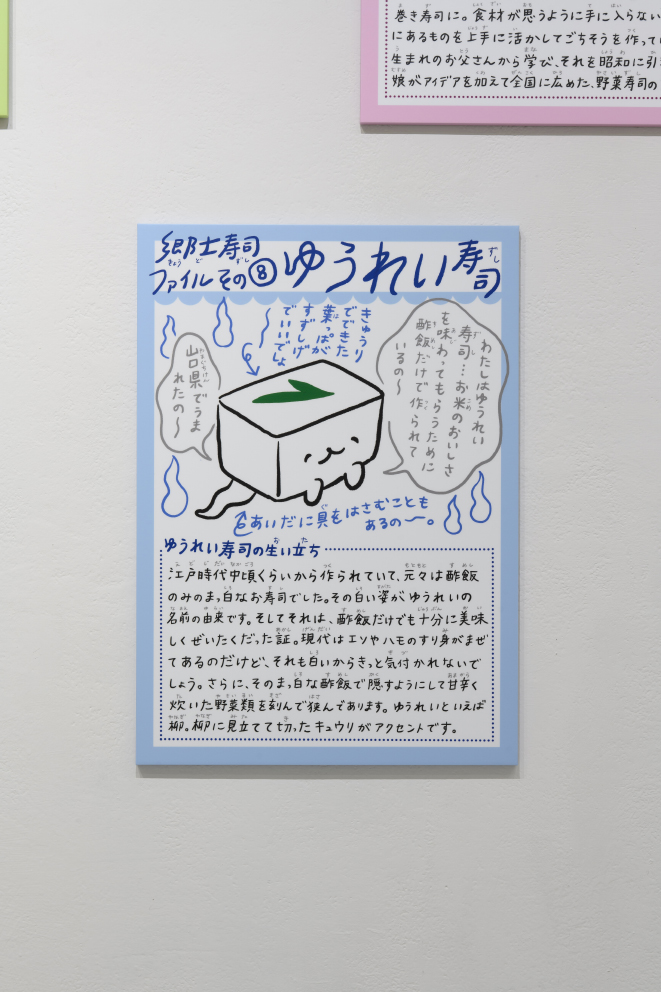 巻き寿司に。食材が思うように手に入らない
にあるものを上手に活かしてごちそうを作ってい
生まれのお父さんから学び、それを昭和に引
娘がアイデアを加えて全国に広めた、野菜寿司の
郷土寿司
ファイルその⑧
ゆうれい寿司
きゅうり
でできた
葉っぱが
すずしげ
でいいでしょ
わたしはゆうれい
寿司…お米のおいしさ
を味わってもらうために
酢飯だけで作られて
いるの〜
山口県でうま
れたの〜
あいだに具をはさむことも
あるの〜。
ゆうれい寿司の生い立ち
江戸時代中頃くらいから作られていて、元々は酢飯
のみのまっ白なお寿司でした。その白い姿がゆうれいの
名前の由来です。そしてそれは、酢飯だけでも十分に美味
しくぜいたくだった証。現代はエソやハモのすり身がまぜ
てあるのだけど、それも白いからきっと気付かれないで
しょう。さらに、そのまっ白な酢飯で隠すようにして甘辛く
炊いた野菜類を刻んで挟んであります。ゆうれいといえば
柳。柳に見立てて切ったキュウリがアクセントです。